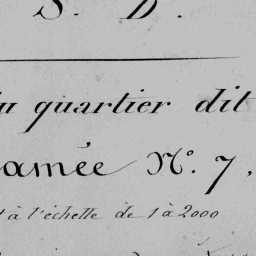 S. D.
u quartier dit
amée N°. 7,
t à l'échelle de 1 à 2000